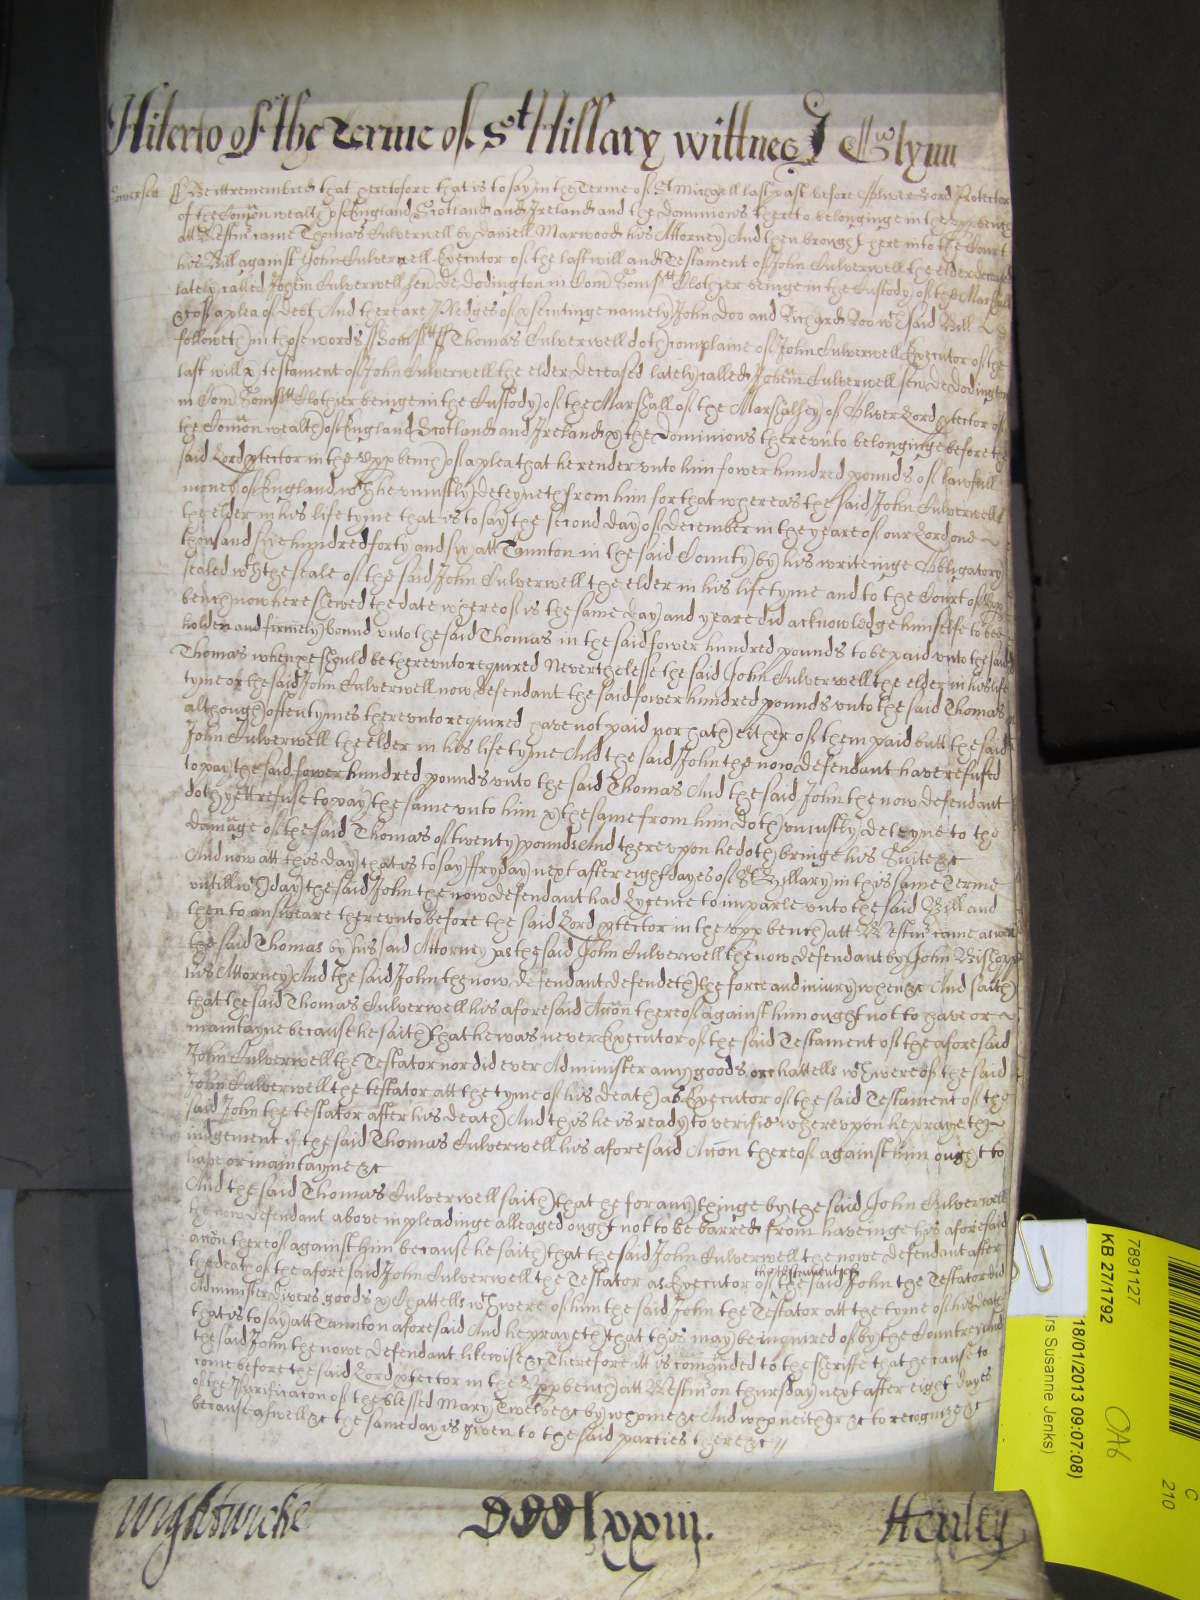 Hiterto of the Terme of St Hillary wittnes J Glynn
Somersett ss Be itt remembred that heretofore that is to say in the Terme of St Michaell last past before Oliver Lord Protector
of the Comon wealth of England Scotland and Ireland and the Dominions thereto belonginge in the upp bench
att Westm came Thomas Culverwell by Daniell Marwood his Attorney And then brought here into the Court
his Bill against John Culverwell Executor of the last will and Testament of John Culverwell the elder deceased
lately called John Culverwell sen de Dodington in Com Somstt Clothier beinge in the Custody of the Marshall
&c of a plea of Debt And there are Pledges of psecutinge namely John Doo and Richard Roo wch said Bill
followeth in those words ss Somstt ss Thomas Culverwell doth complaine of John Culverwell Executor of the
last will & testament of John Culverwell the elder deceased lately called John Culverwell sen de Dodington
in Com Somstt Clothier beinge in the Custody of the Marshall of the Marshalsey of Oliver Lord ptector of
the Comon wealth of England Scotland and Ireland & the Dominions thereunto belonginge before the
said Lord ptector in the upp bench of a plea that he render unto him fower hundred pounds of lawfull
money of England wch he uniustly deteyneth from him for that whereas the said John Culverwell
the elder in his life tyme that is to say the second day of December in the yeare of our Lord one
thousand six hundred forty and six att Taunton in the said County by his writeinge Obligatory
sealed wth the seale of the said John Culverwell the elder in his life tyme and to the Court of upp
bench now here shewed the date whereof is the same day and yeare did acknowledge himselfe to bee
holden and firmely bound unto the said Thomas in the said fower hundred pounds to be paid unto the said
Thomas when he should be thereunto required Neverthelesse the said John Culverwell the elder in his life
tyme or the said John Culverwell now defendant the said fower hundred pounds unto the said Thomas
although oftentymes thereunto required have not paid nor hath either of them paid butt the said
John Culverwell the elder in his life tyme And the said John the now defendant have refused
to pay the said fower hundred pounds unto the said Thomas And the said John the now defendant
doth yett refuse to pay the same unto him & the same from him doth uniustly deteyne to the
damage of the said Thomas of twenty pounds And thereupon he doth bringe his Suite &c
And now att this day that is to say ffryday next after eight dayes of St Hillary in this same Terme
untill wch day the said John the now defendant had Lycence to imparle unto the said Bill and
then to answeare thereunto before the said Lord ptector in the upp bench att Westm came aswell
the said Thomas by his said Attorney as the said John Culverwell the now defendant by John Bishopp
his Attorney And the said John the now defendant defendeth the force and iniury when &c And saith
that the said Thomas Culverwell his aforesaid Accon thereof against him ought not to have or
maintayne because he saith that he was never Executor of the said Testament of the aforesaid
John Culverwell the Testator nor did ever Administer any goods or chattells wch were of the said
John Culverwell the testator att the tyme of his death as Executor of the said Testament of the
said John the testator after his death And this he is ready to verifie whereupon he prayeth
iudgement if the said Thomas Culverwell his aforesaid Accon thereof against him ought to
have or maintayne &c
And the said Thomas Culverwell saith that he for any thinge by the said John Culverwell
the now defendant above in pleadinge alleaged ought not to be barred from haveinge his aforesaid
accon thereof against him because he saith that the said John Culverwell the nowe defendant after
the death of the aforesaid John Culverwell the Testator as Executor of the testament of the said John the Testator did
Administer divers goods & Chattells wch were of him the said John the Testator att the tyme of his death
that is to say att Taunton aforesaid And he prayeth that this may be inquired of by the Countrey And
the said John the nowe defendant likewise &c Therefore itt is comanded to the sheriffe that he cause to
come before the said Lord ptector in the Upp bench att Westm on thursday next after eight dayes
of the Purificacon of the blessed Mary Twelve &c by whome &c And who neither &c to recognize &c
because aswell &c the same day is given to the said parties there &c //
Wightwicke DCClxxiij. Henley
7891127
KB 27/1792
18/01/2013 09:07:08)
rs Susanne Jenks)
OA6
C
210